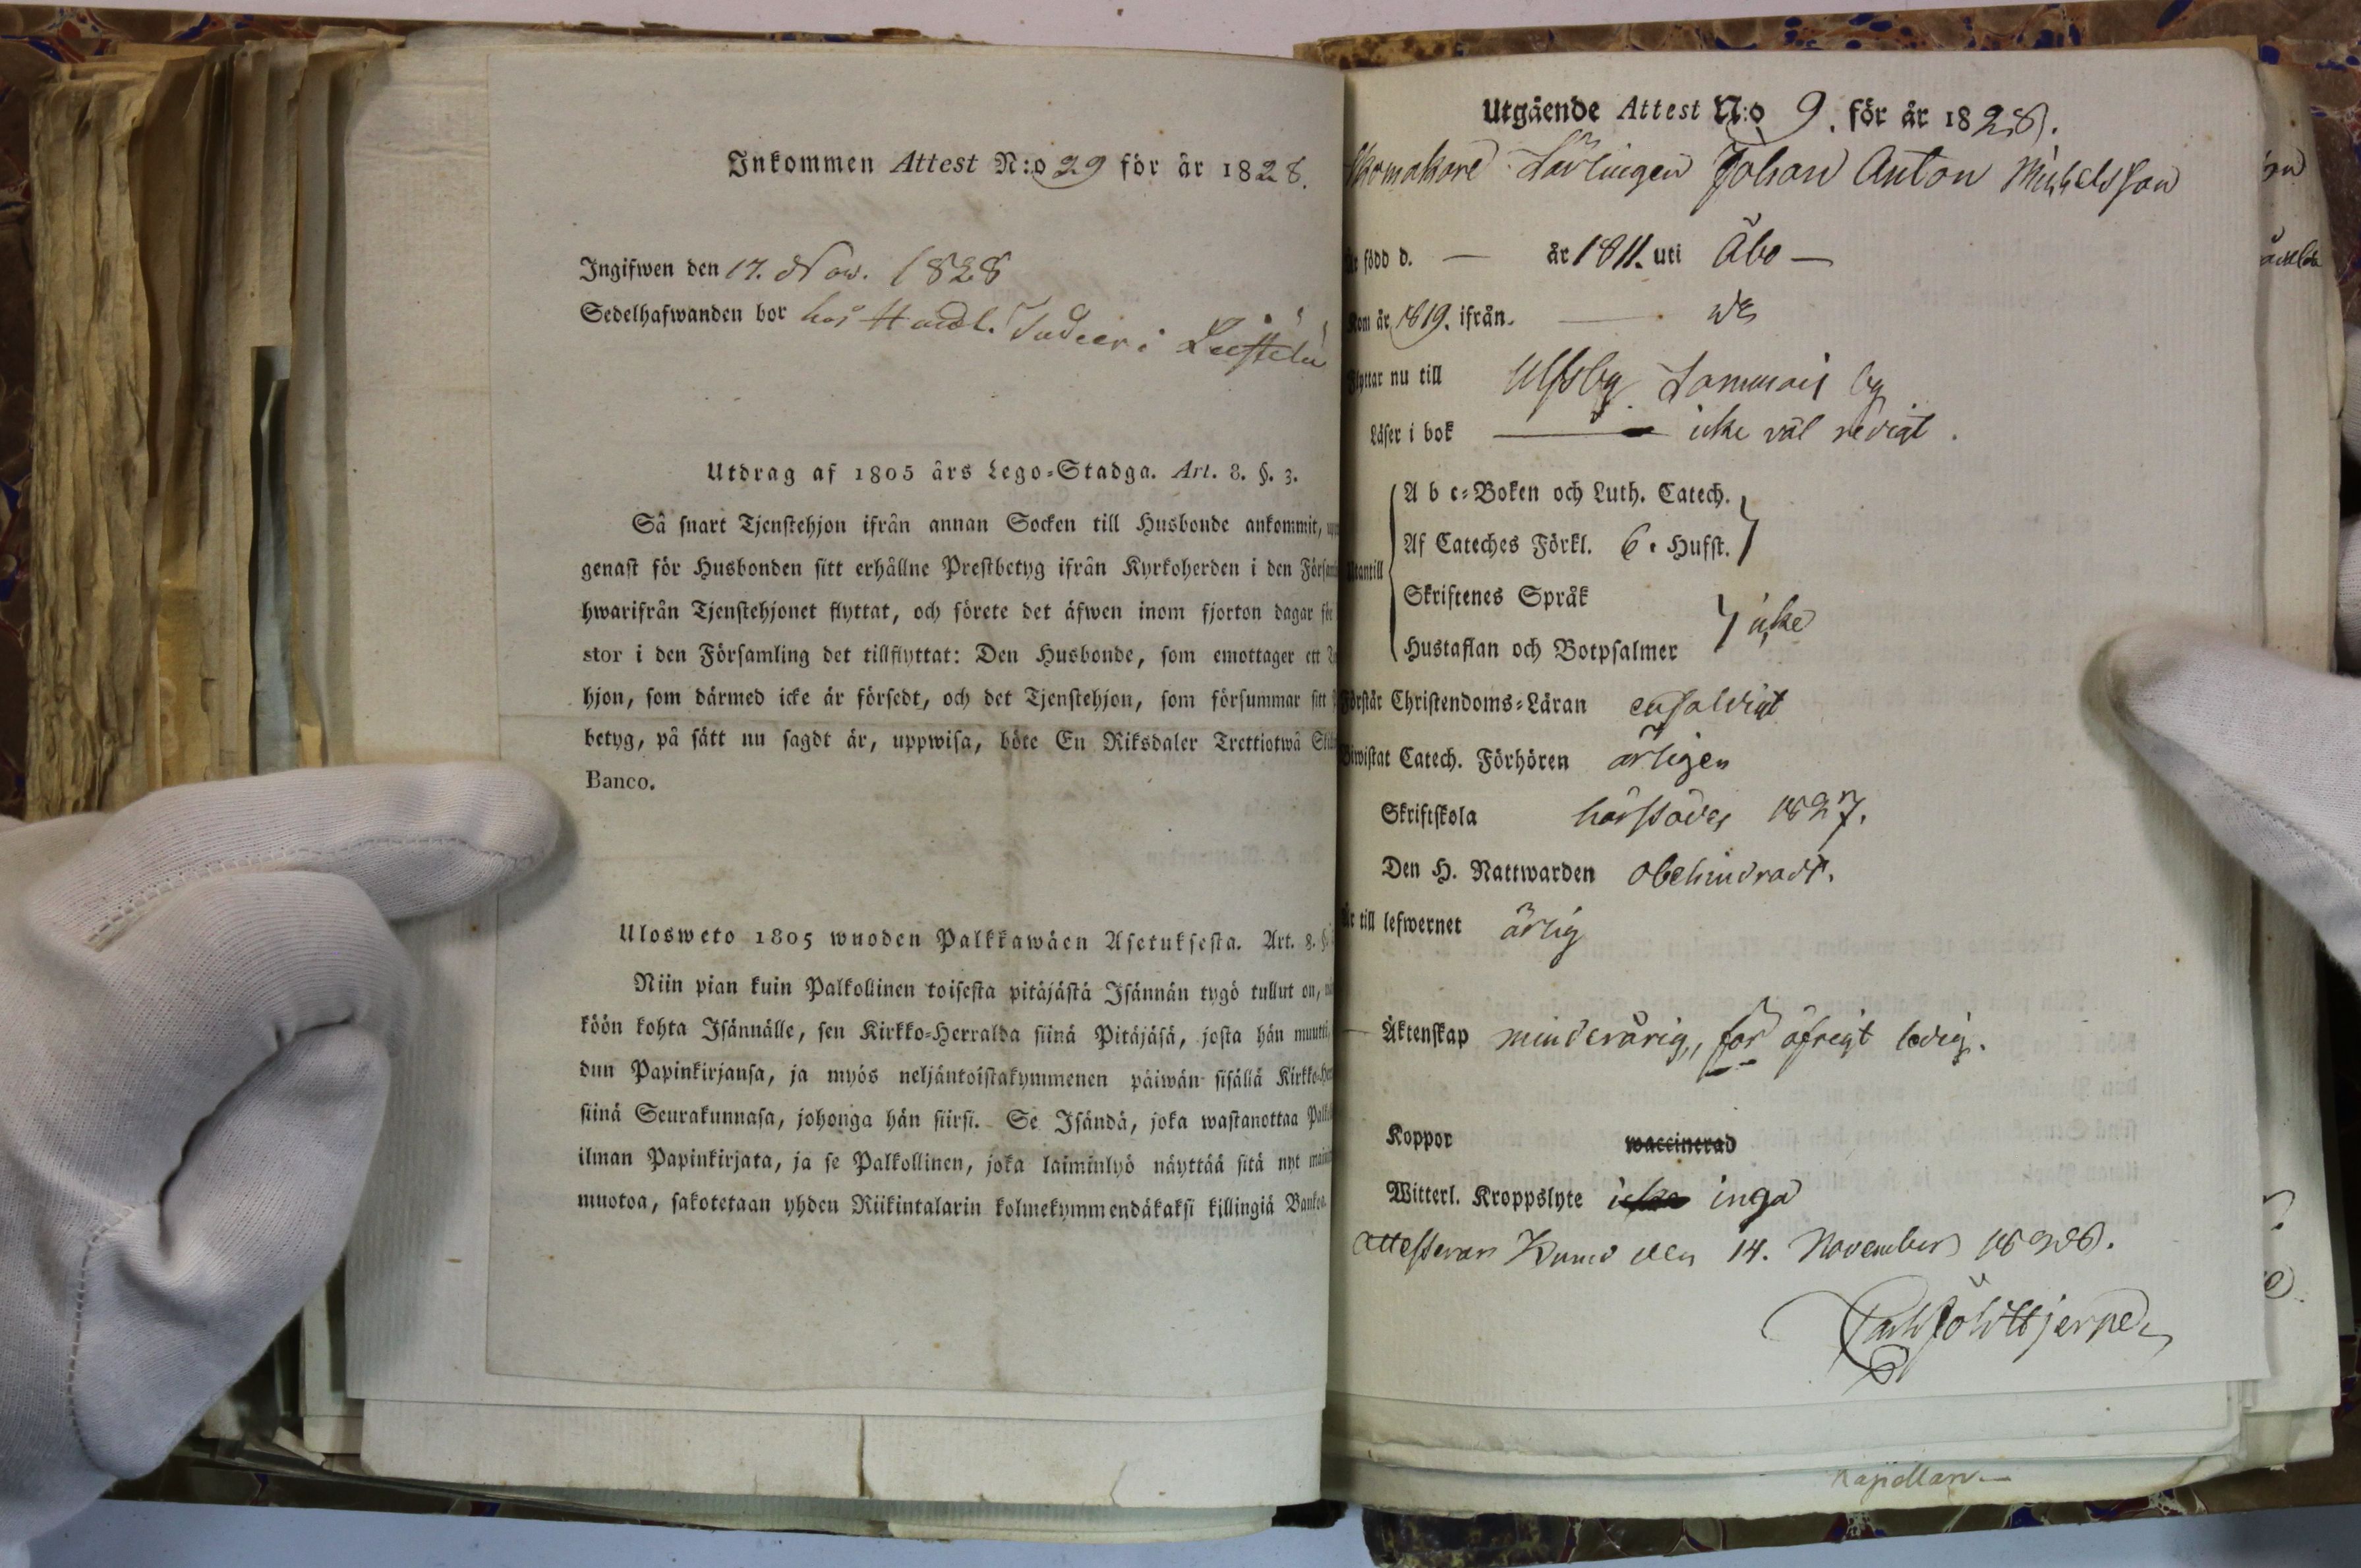 Inkommen Attest N:o 29 för år 1828.
Ingifwen den 17. Nov. 1828
Sedelhafwanden bor hos Handl. i
Utdrag af 1805 års Lego-Stadga. Art. 8. §. 3.
Så snart Tjenstehjon ifrån annan Socken till Husbonde ankommit,
genast för Husbonden sitt erhållne Prestbetyg ifrån Kyrkoherden i den
hwarifrån Tjenstehjonet flyttat, och förete det äfwen inom fjorton dagar
stor i den Församling det tillflyttat: Den Husbonde, som emottager ett
hjon, som därmed icke är försedt, och det Tjenstehjon, som försummar sitt
betyg, på sätt nu sagdt är, uppwisa, böte En Riksdaler Trettiotwå
Banco.
Ulosweto 1805 wuoden Palkkawäen Asetuksesta. Art. 8.
Niin pian kuin Palkollinen toisesta pitäjästä Isännän tygö tullut on,
köön kohta Isännälle, sen Kirkko-Herralda siinä Pitäjäsä, josta hän muutti
dun Papinkirjansa, ja myös neljäntoistakymmenen päiwän sisällä
siinä Seurakunnasa, johonga hän siirsi. Se Isändä, joka wastanottaa
ilman Papinkirjata, ja se Palkollinen, joka laiminlyö näyttää sitä nyt
muotoa, sakotetaan yhden Riikintalarin kolmekymmendäkaksi killingiä
Utgående Attest N:o 9. för år 1828.
Skomakare Lärlingen Johan Anton Michelsson
född d. — år 1811. uti Åbo —
Kom år 1819. ifrån. —
Flyttar nu till Ulfsby Lammais by
Läser i bok — icke väl redigt.
A b c-Boken och Luth. Catech.
Af Cateches Förkl. 6. Hufst.
Utantill
Skriftenes Språk
Hustaflan och Botpsalmer } icke
Förstår Christendoms-Läran enfaldigt
Biwistat Catech. Förhören årligen
Skriftskola härstädes 1827.
Den H. Nattwarden obehindradt.
Är till lefwernet ärlig
Äktenskap minderårig, för öfrigt ledig.
Koppor waccinerad
Witterl. Kroppslyte icke inga
Attesterar Kumo den 14. November 1828.
Kapellan —